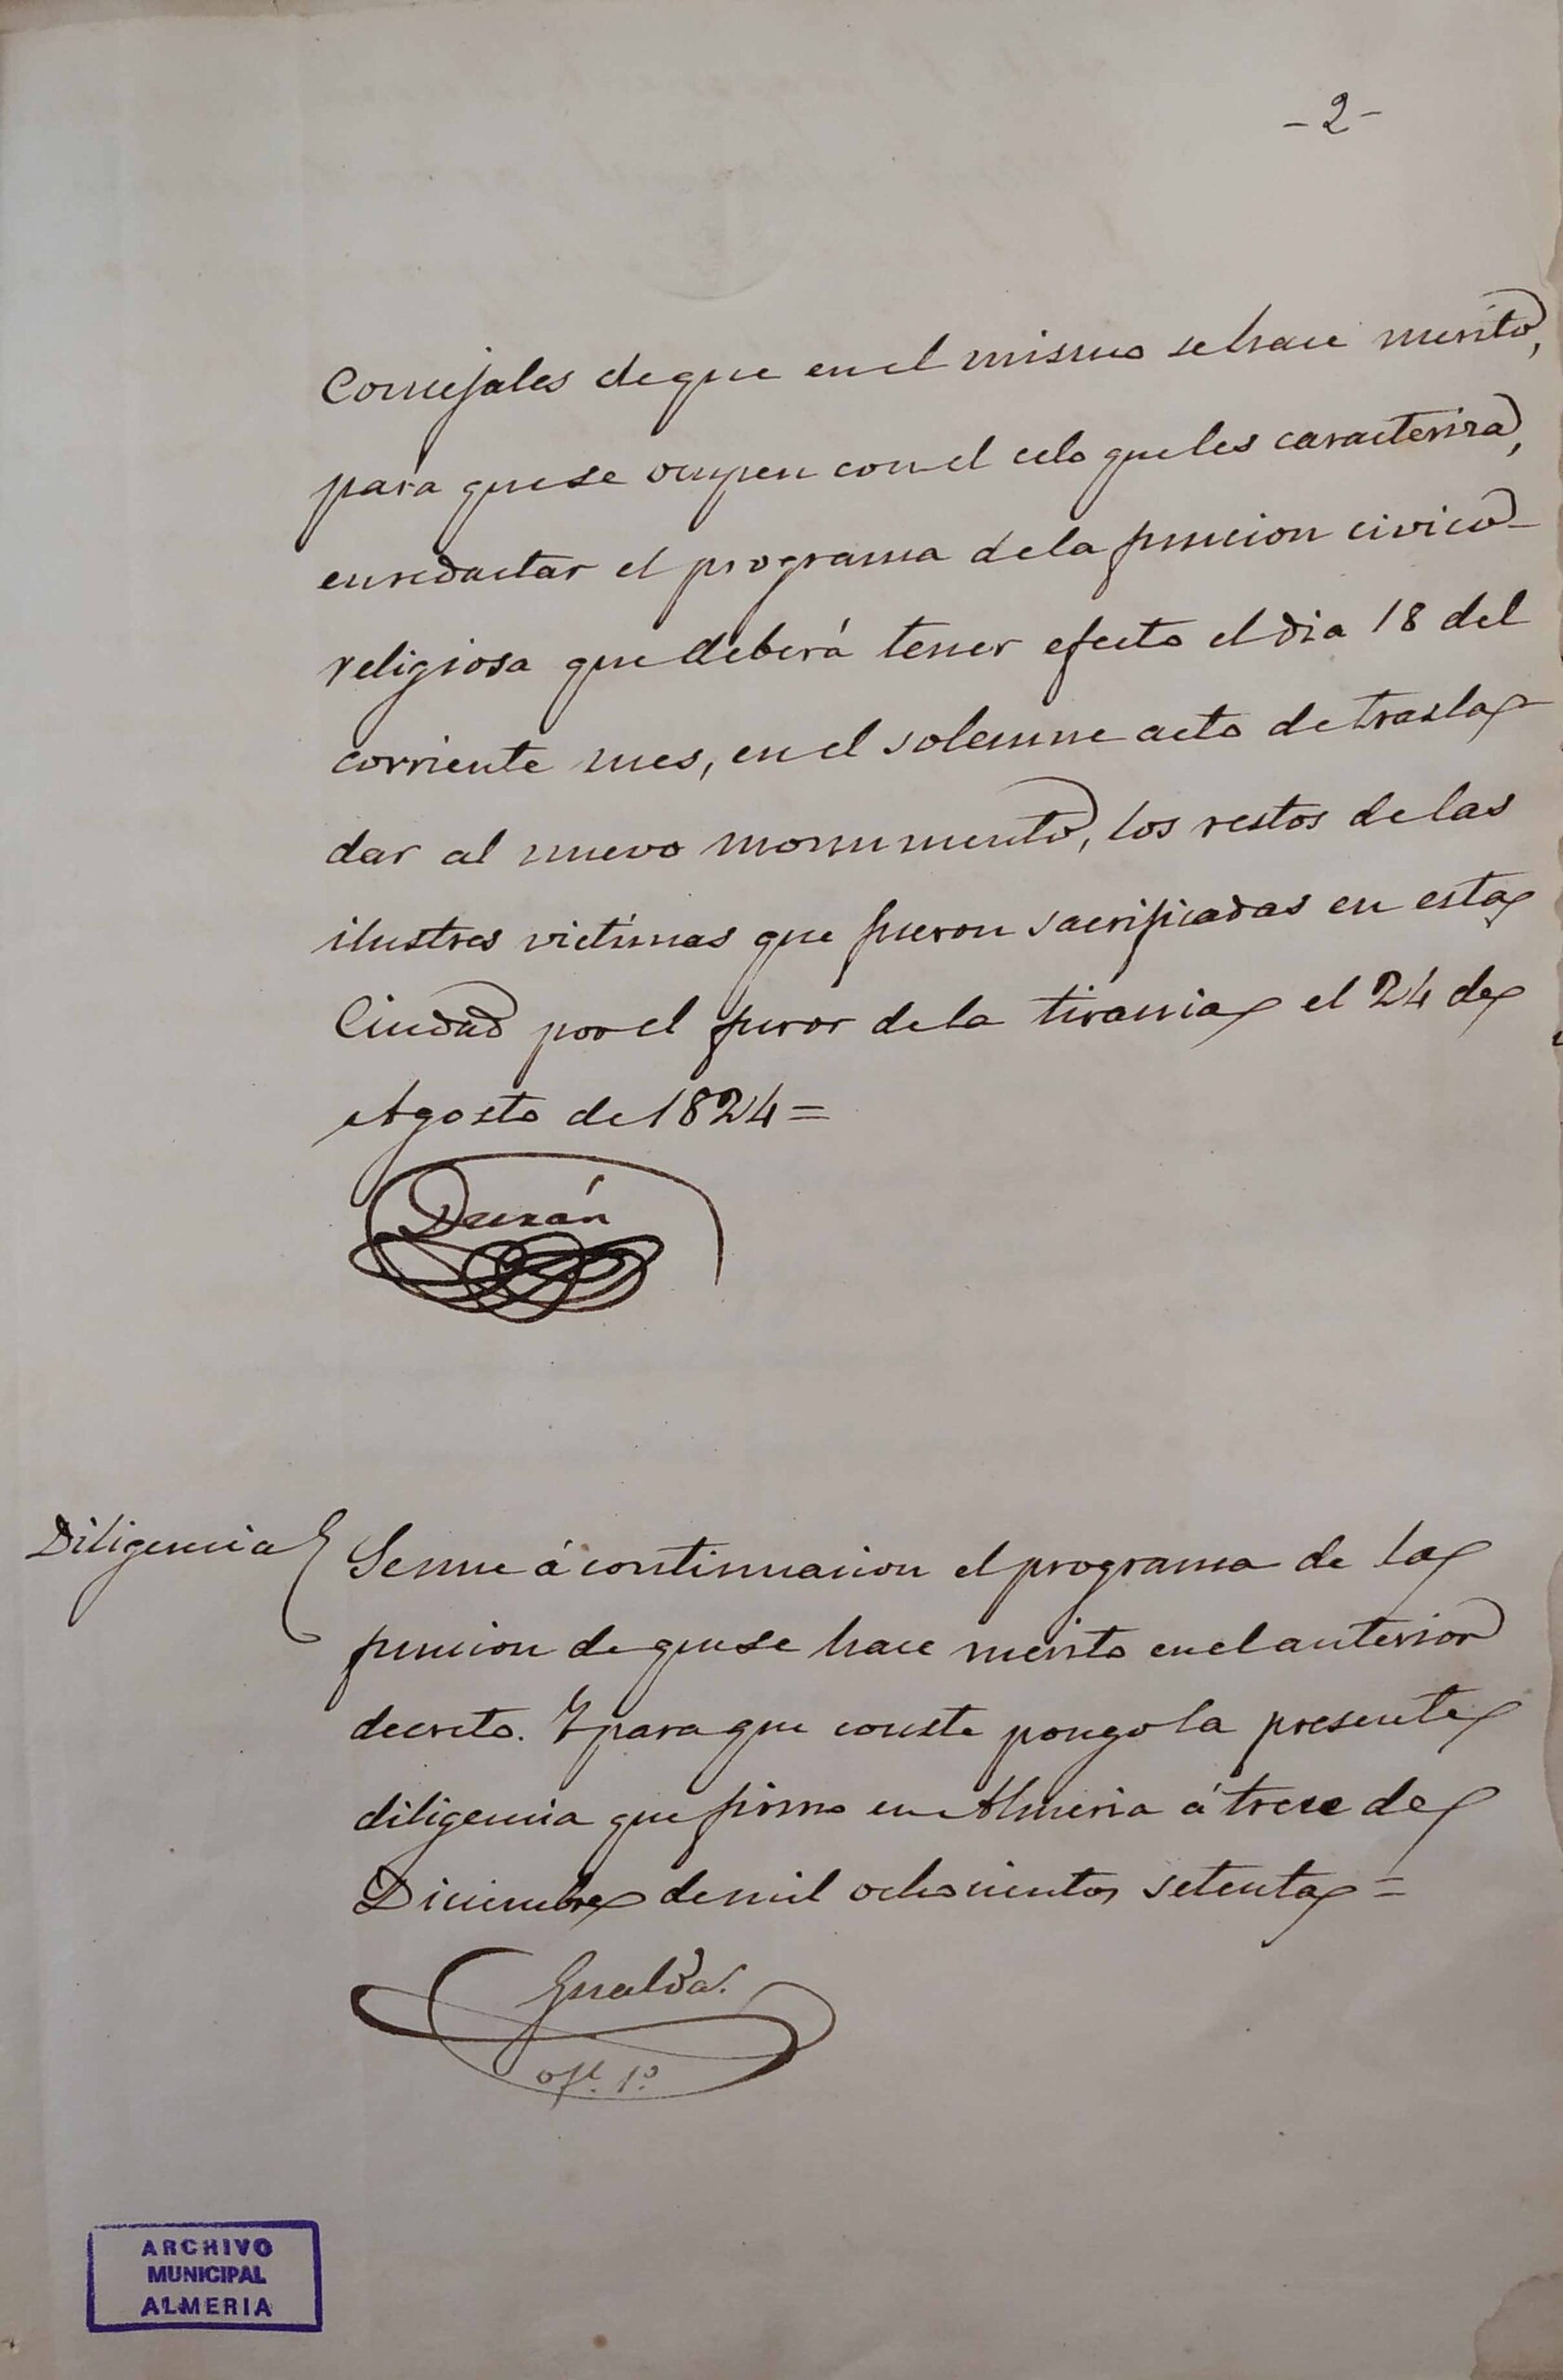 -2-
Concejales de que en el mismo se hace merito,
para que se ocupen con el celo que les caracteriza,
en redactar el programa de la funcion civico-
religiosa que deberá tener efecto el dia 18 del
corriente mes, en el solemne acto de trasla-
dar al nuevo monumento, los restos de las
ilustres victimas que fueron sacrificadas en esta
Ciudad por el furor de la tirania el 24 de
Agosto de 1824=
Durán
Diligencia Se une á continuacion el programa de la
funcion de que se hace merito en el anterior
decreto. Y para que conste pongo la presente
diligencia que firmo en Almeria á trece de
Diciembre de mil ochocientos setenta=
Gualda.
ofl. 1º
ARCHIVO
MUNICIPAL
ALMERIA